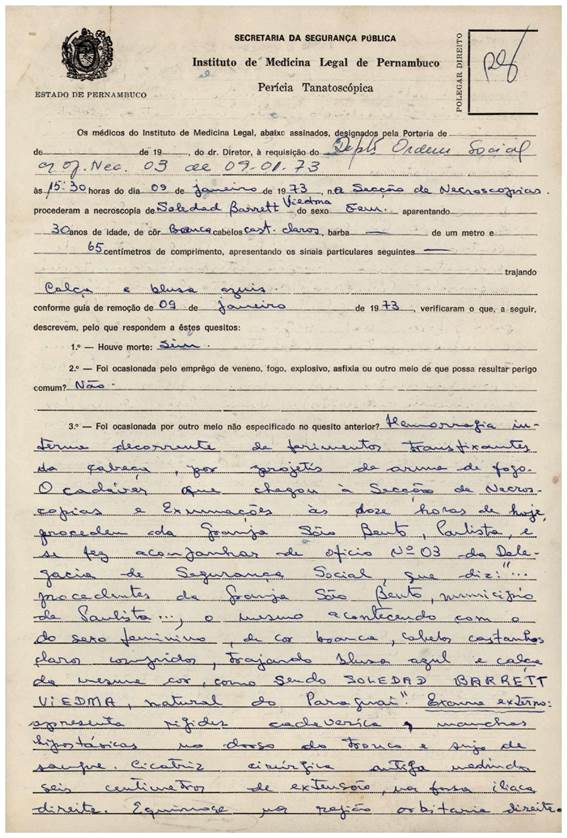 SECRETARIA DA SEGURANÇA PÚBLICA
Instituto de Medicina Legal de Pernambuco
Perícia Tanatoscópica
ESTADO DE PERNAMBUCO
POLEGAR DIREITO
Os médicos do Instituto de Medicina Legal, abaixo assinados, designados pela Portaria de
de de 19 , do dr. Diretor, à requisição do Deptº Ordem Social
of. Nec. 03 de 09-01-73
às 15:30 horas do dia 09 de janeiro de 1973, na Secção de Necroscopias.
procederam a necroscopia de Soledad Barrett Viedma do sexo Fem. aparentando
30 anos de idade, de côr branca cabelos cast. claros, barba — de um metro e
65 centímetros de comprimento, apresentando os sinais particulares seguintes —
trajando
Calça e blusa azuis
conforme guia de remoção de 09 de janeiro de 1973, verificaram o que, a seguir,
descrevem, pelo que respondem a êstes quesitos:
1.º — Houve morte: Sim.
2.º — Foi ocasionada pelo emprêgo de veneno, fogo, explosivo, asfixia ou outro meio de que possa resultar perigo
comum? Não.
3.º — Foi ocasionada por outro meio não especificado no quesito anterior? Hemorragia in-
terna decorrente de ferimentos transfixantes
da cabeça, por projetis de arma de fogo.
O cadáver que chegou à Secção de Necros-
copias e Exumações às doze horas de hoje,
procedem da Granja São Bento, Paulista, e
se fez acompanhar de ofício Nº 03 da Dele-
gacia de Segurança Social, que diz: "...
procedentes da Granja São Bento, município
de Paulista..., o mesmo acontecendo com o
do sexo feminino, de cor branca, cabelos castanhos
claros compridos, trajando blusa azul e calça
da mesma cor, como sendo SOLEDAD BARRETT
VIEDMA, natural do Paraguai". Exame externo:
apresenta rigidez cadavérica, manchas
hipostásicas no dorso do tronco e suja de
sangue. Cicatriz cirúrgica antiga medindo
seis centímetros de extensão, na fossa ilíaca
direita. Equimose na região orbitária direita.